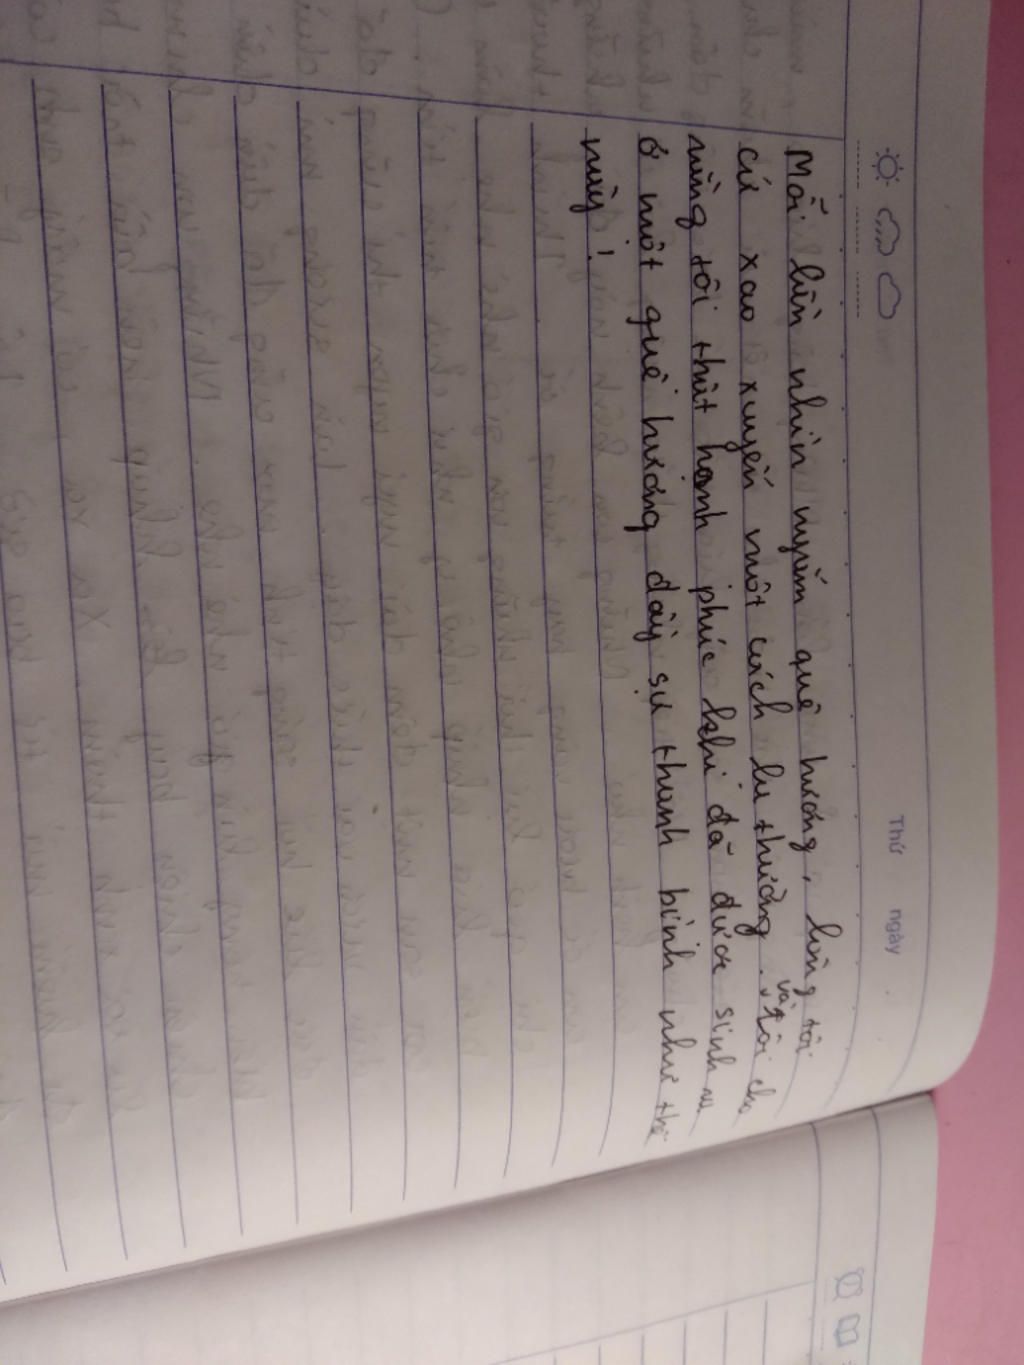 Thứ ngày
Mỗi lần nhìn ngắm quê hương, lòng tôi
cứ xao xuyến một cách lạ thường. và tôi cho
rằng tôi thật hạnh phúc khi đã được sinh ra
ở một quê hương đầy sự thanh bình như thế
này!